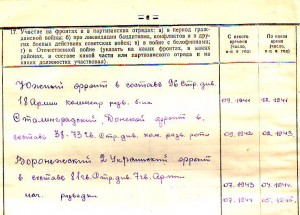 — 2 —
17. Участие на фронтах и в партизанских отрядах: а) в период граж-
данской войны; б) при ликвидации бандитизма, конфликтов и в дру-
гих боевых действиях советских войск; в) в войне с белофиннами;
г) в Отечественной войне (указать на каких фронтах, в каких
районах, в составе какой части или партизанского отряда и на
каких должностях участвовал).
С какого времени (число, м-ц и год)
По какое время (число, м-ц и год)
Южный фронт в составе 96 Стр. див.
18 Армии командир в-на
09.1941
12.1941
Сталинградский, Донской фронт в
составе 38-73 гв. Стр. див. ком. разв. роты
09.1942
02.1943
Воронежский 2 Украинский фронт
в составе 81 гв. Стр. див. 7 гв. Армии
07.1943
04.1944
нач. разведки
07.1944
05.1945